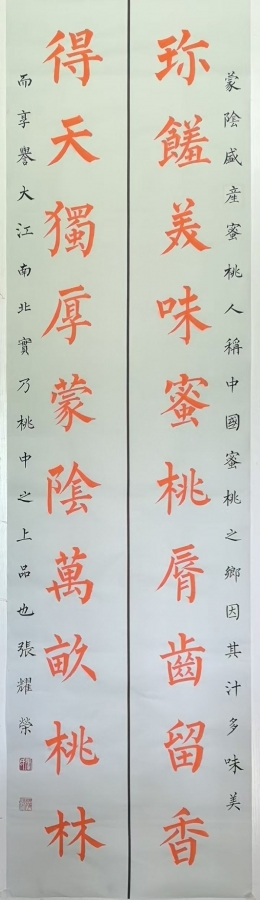 蒙陰盛産蜜桃人稱中國蜜桃之鄉因其汁多味美
珎饈美味蜜桃脣齒留香
得天獨厚蒙陰萬畝桃林
而享譽大江南北實乃桃中之上品也張耀榮